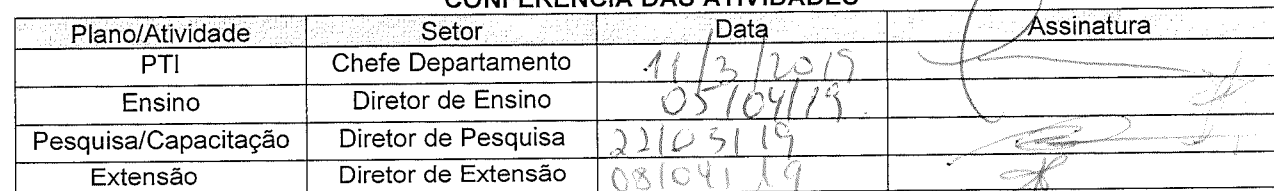 CONFERÊNCIA DAS ATIVIDADES
Plano/Atividade Setor Data Assinatura
PTI Chefe Departamento 11/3/2019
Ensino Diretor de Ensino 05/04/19
Pesquisa/Capacitação Diretor de Pesquisa 22/03/19
Extensão Diretor de Extensão 08/04/19